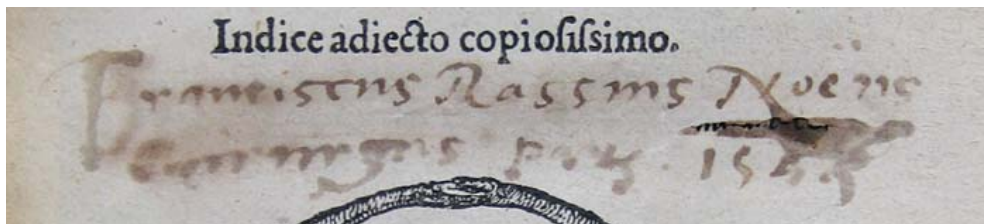 Indice adiecto copioſiſsimo.
Franciscus Rassius Noëus
Chirurgus